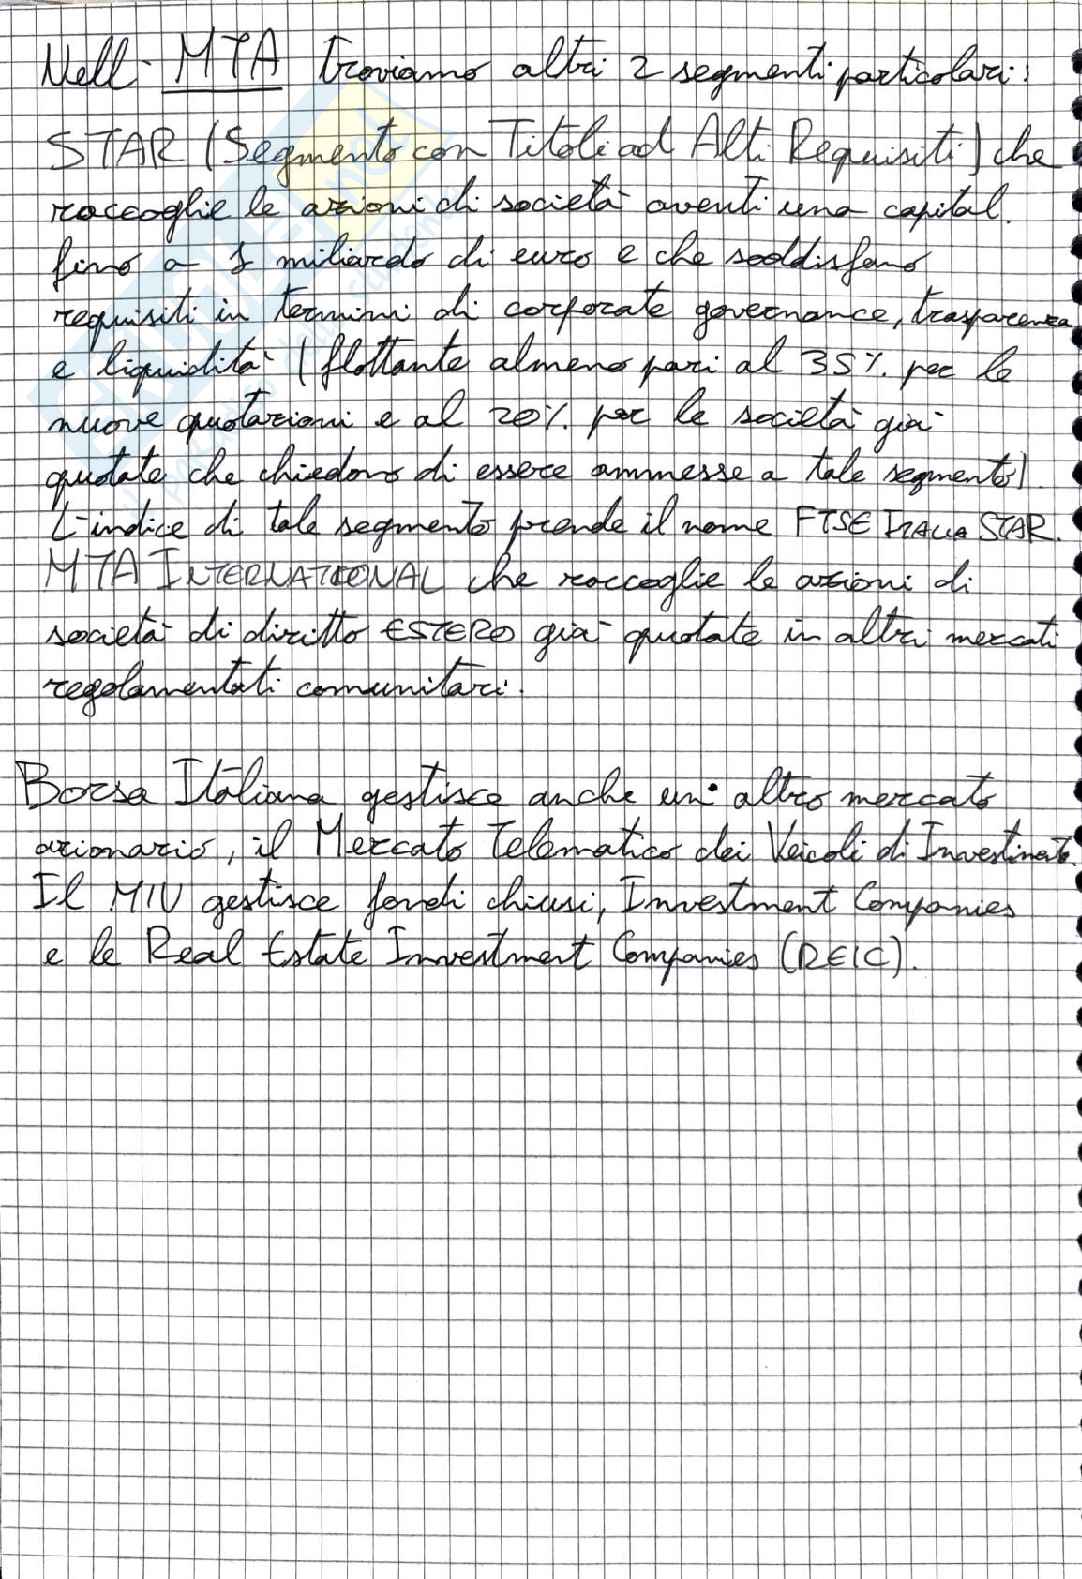 Nell' MTA troviamo altri 2 segmenti particolari:
STAR (Segmento con Titoli ad Alti Requisiti) che
raccoglie le azioni di società aventi una capital.
fino a 1 miliardo di euro e che soddisfano
requisiti in termini di corporate governance, trasparenza
e liquidità (flottante almeno pari al 35% per le
nuove quotazioni e al 20% per le società già
quotate che chiedono di essere ammesse a tale segmento).
L'indice di tale segmento prende il nome FTSE ITALIA STAR.
MTA INTERNATIONAL che raccoglie le azioni di
società di diritto ESTERO già quotate in altri mercati
regolamentati comunitari.
Borsa Italiana gestisce anche un' altro mercato
azionario, il Mercato Telematico dei Veicoli di Investimento.
Il MIV gestisce fondi chiusi, Investment Companies
e le Real Estate Investment Companies (REIC).